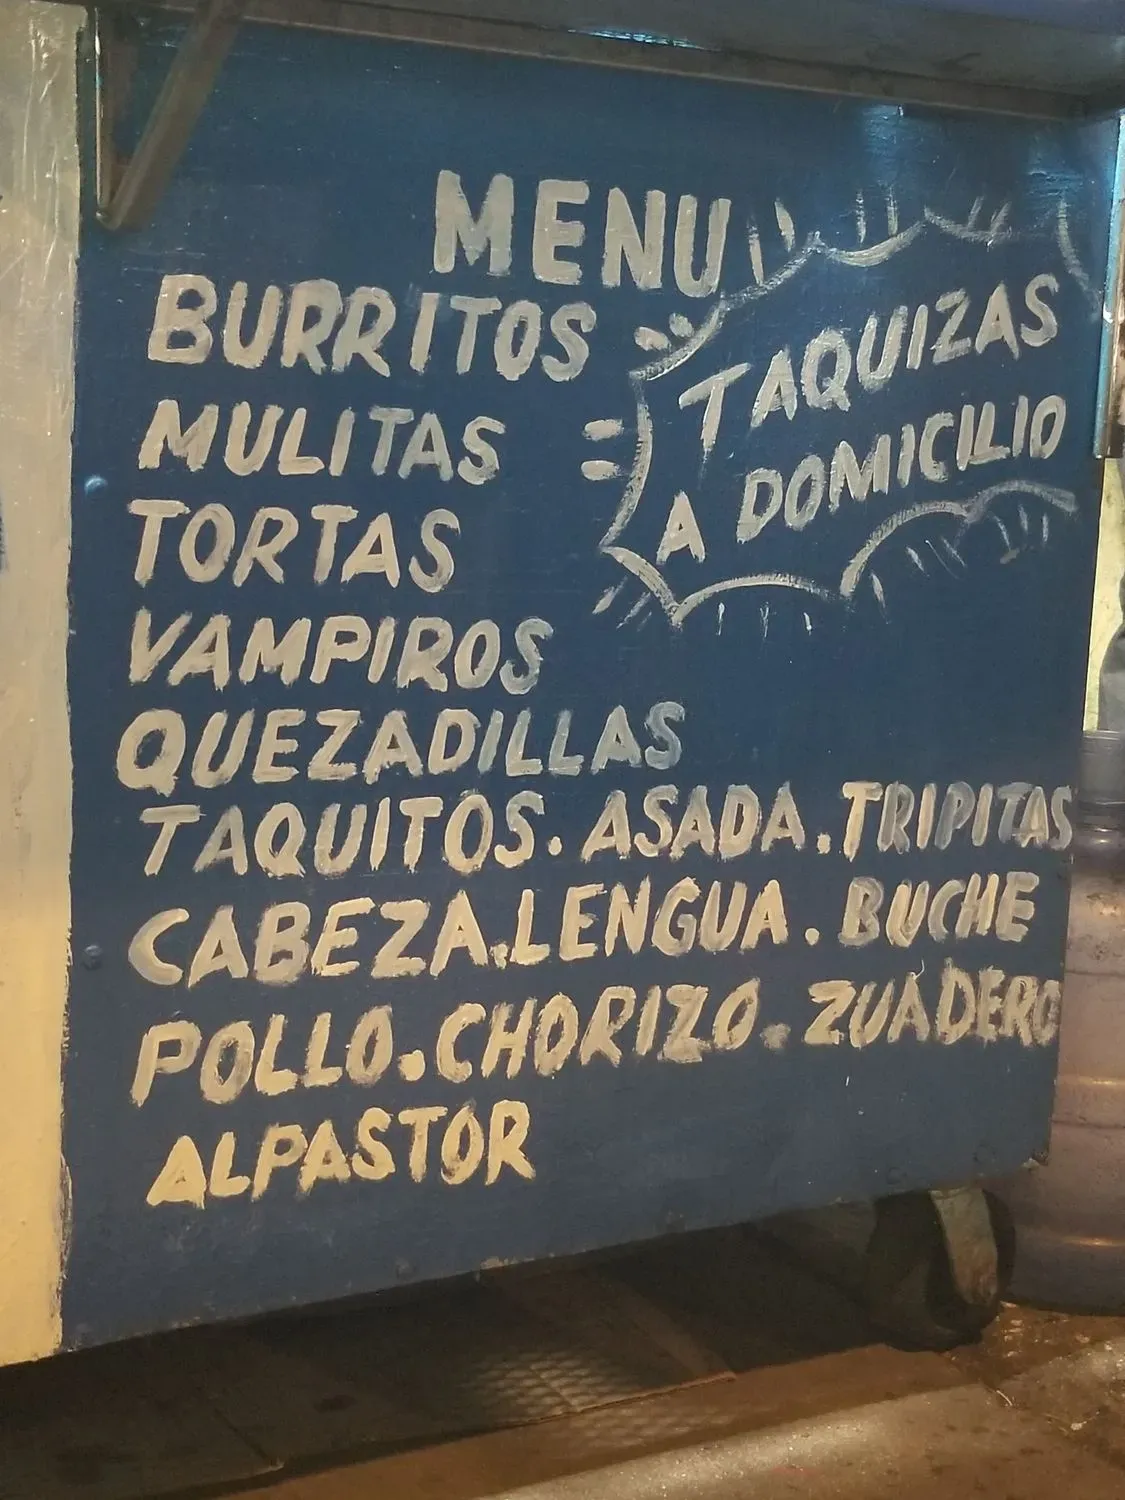 MENU
BURRITOS
MULITAS
TORTAS
VAMPIROS
QUEZADILLAS
TAQUITOS. ASADA. TRIPITAS
CABEZA. LENGUA. BUCHE
POLLO. CHORIZO. ZUADERO
ALPASTOR
TAQUIZAS
A DOMICILIO